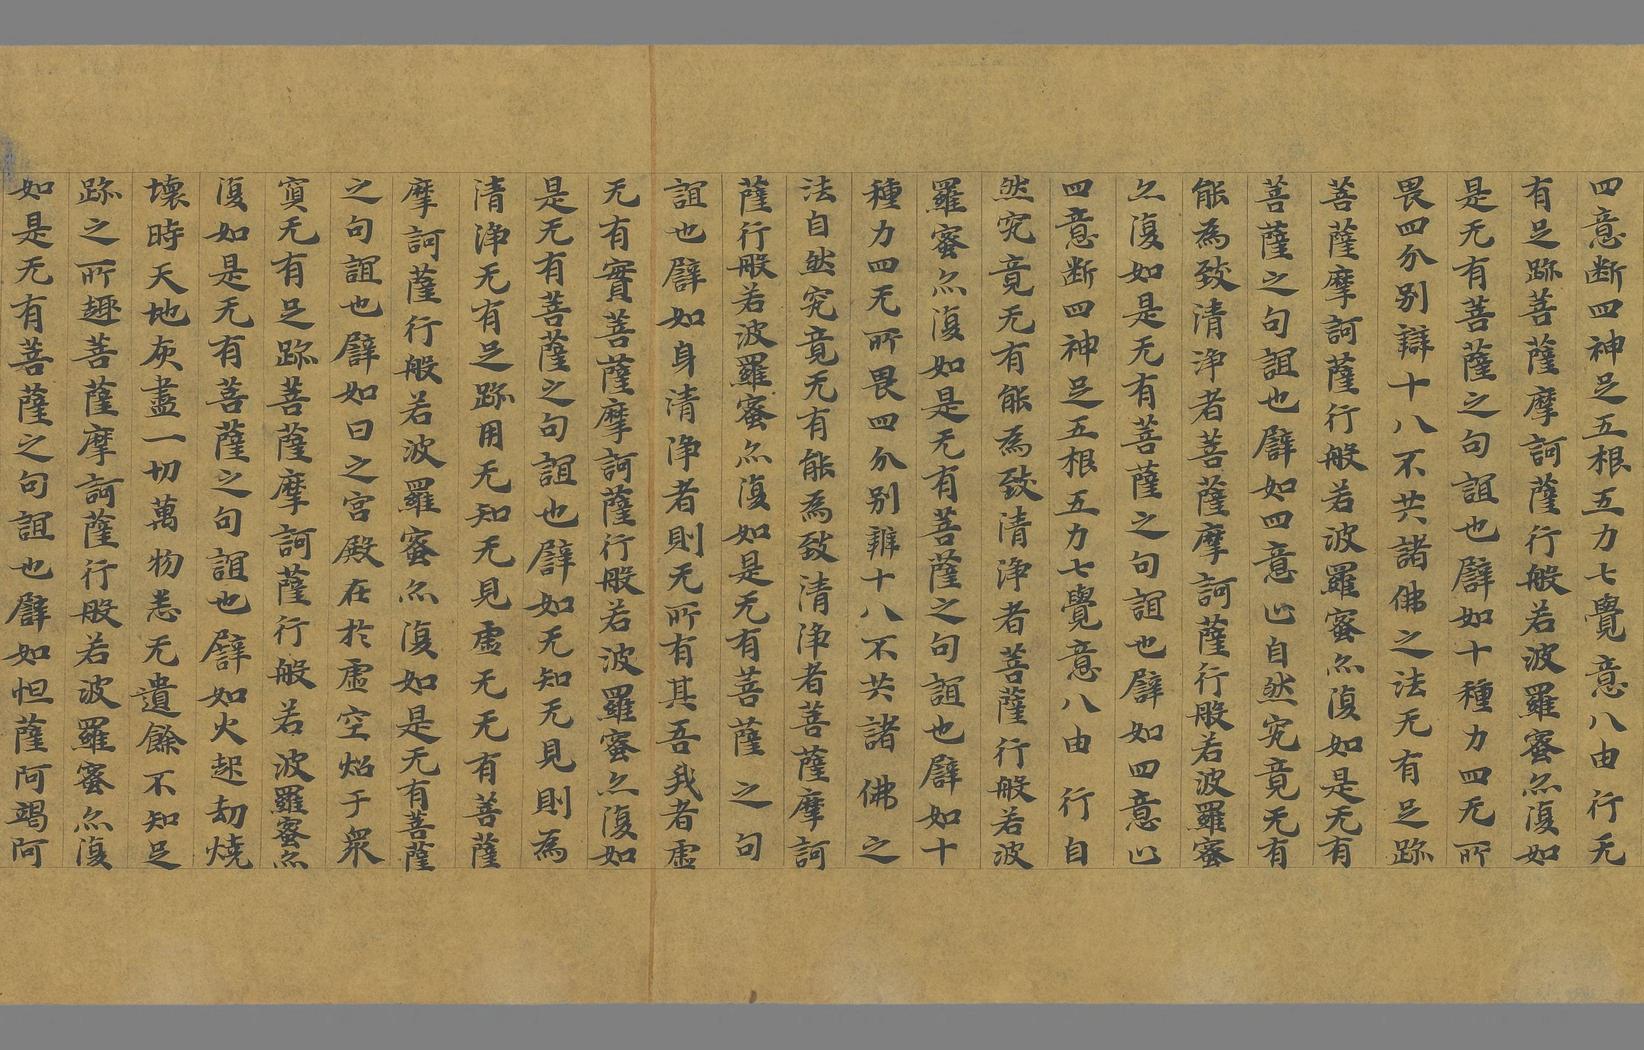 四意断四神足五根五力七覺意八由行无
有足跡菩薩摩訶薩行般若波羅蜜亦復如
是无有菩薩之句誼也譬如十種力四无所
畏四分别辯十八不共諸佛之法无有足跡
菩薩摩訶薩行般若波羅蜜亦復如是无有
菩薩之句誼也譬如四意止自然究竟无有
能為致清淨者菩薩摩訶薩行般若波羅蜜
亦復如是无有菩薩之句誼也譬如四意止
四意断四神足五根五力七覺意八由行自
然究竟无有能為致清淨者菩薩行般若波
羅蜜亦復如是无有菩薩之句誼也譬如十
種力四无所畏四分别辯十八不共諸佛之
法自然究竟无有能為致清淨者菩薩摩訶
薩行般若波羅蜜亦復如是无有菩薩之句
誼也譬如身清淨者則无所有其吾我者虚
无有實菩薩摩訶薩行般若波羅蜜亦復如
是无有菩薩之句誼也譬如无知无見則為
清淨无有足跡用无知无見虚无无有菩薩
摩訶薩行般若波羅蜜亦復如是无有菩薩
之句誼也譬如日之宮殿在於虚空炤于衆
冥无有足跡菩薩摩訶薩行般若波羅蜜亦
復如是无有菩薩之句誼也譬如火起劫燒
壞時天地灰盡一切萬物悉无遺餘不知足
跡之所趣菩薩摩訶薩行般若波羅蜜亦復
如是无有菩薩之句誼也譬如怛薩阿竭阿